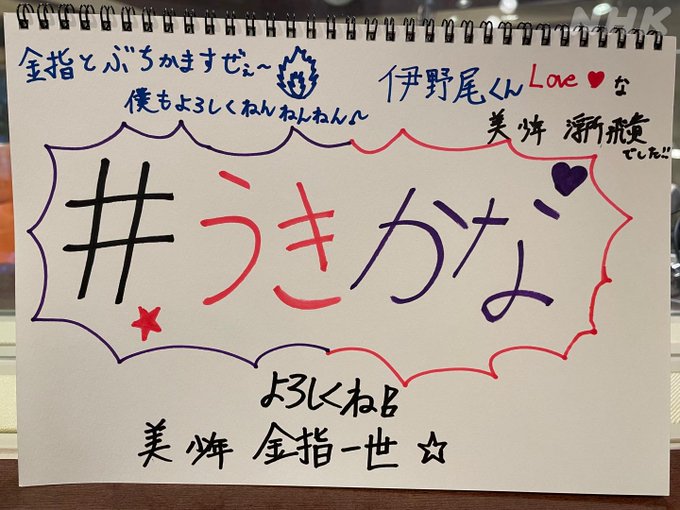 NHK
金指とぶちかますぜぇ〜
僕もよろしくねんねんねん♪
伊野尾くんLove♥な
美 少年 浮所 飛貴
でした!!
#うきかな
よろしくね
美 少年 金指一世 ☆